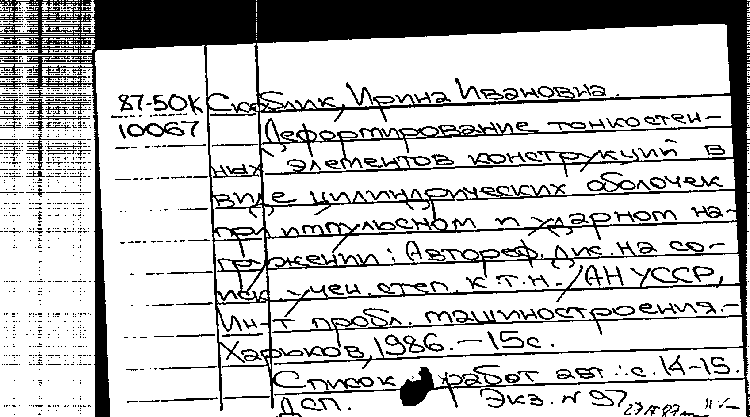 87-50К Скоблик, Ирина Ивановна.
10067 Деформирование тонкостен-
ных элементов конструкций в
виде цилиндрических оболочек
при импульсном и ударном на-
гружении: Автореф. дис. на со-
иск. учен. степ. к.т.н. / АН УССР,
Ин-т пробл. машиностроения.-
Харьков, 1986. - 15с.
Список работ авт.: с. 14-15.
ДСП. Экз. №97